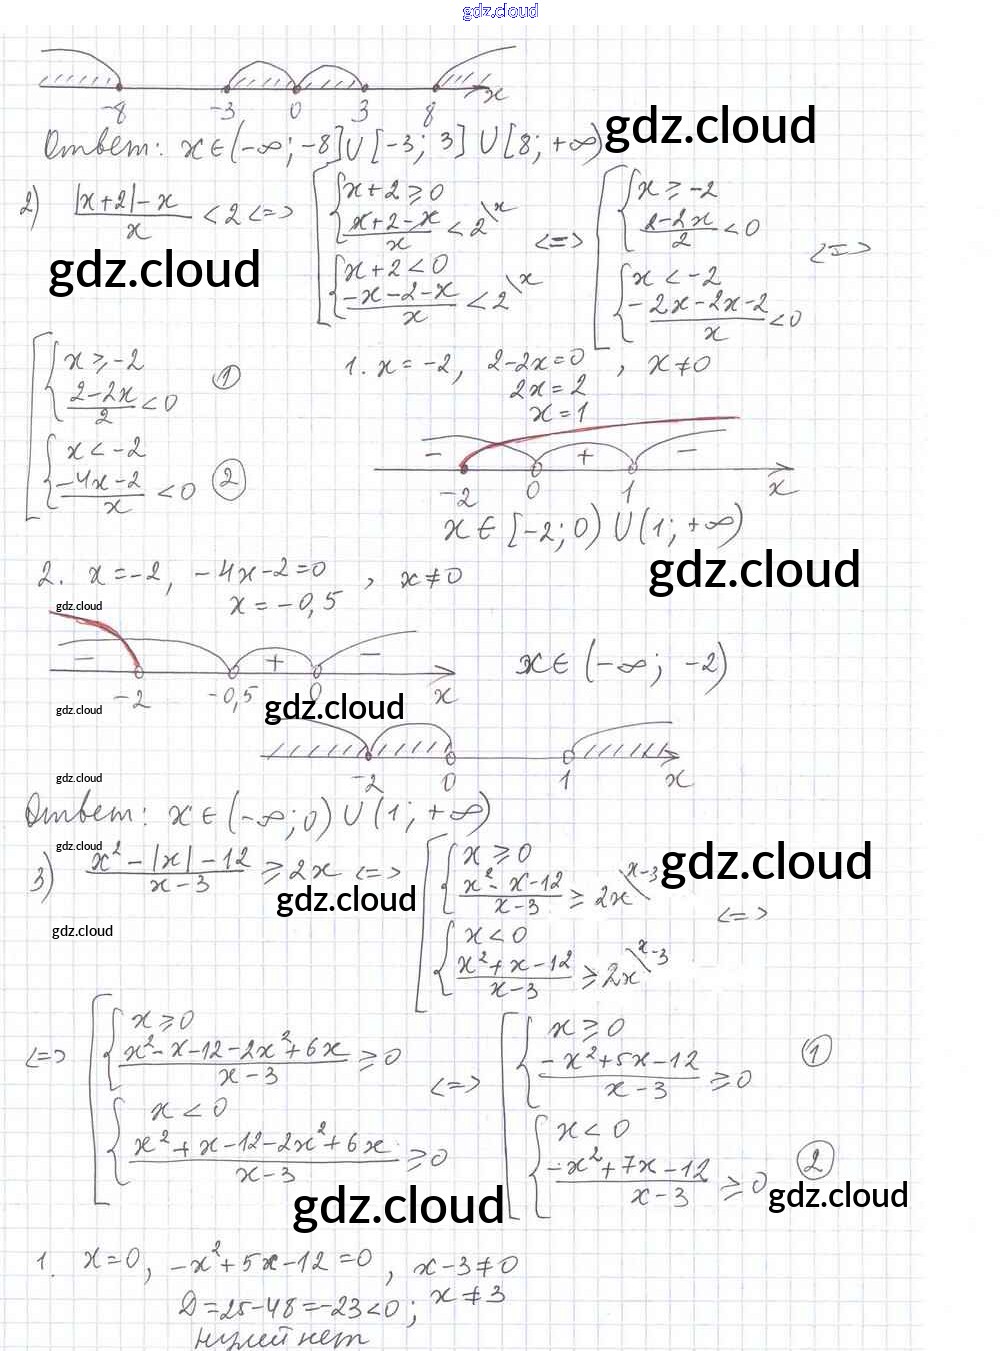 gdz.cloud
-8 -3 0 3 8 x
gdz.cloud
Ответ: x∈(-∞; -8]∪[-3; 3]∪[8; +∞)
2) |x+2|-x / x < 2 <=> [ { x+2≥0 ; x+2-x / x < 2\x ; { x+2<0 ; -x-2-x / x < 2\x <=> [ { x≥-2 ; 2-2x / 2 < 0 ; { x<-2 ; -2x-2x-2 / x < 0 <=>
gdz.cloud
[ { x≥-2 ; 2-2x / 2 < 0 ① ; { x<-2 ; -4x-2 / x < 0 ②
1. x=-2, 2-2x=0 , x≠0
2x=2
x=1
- + -
-2 0 1 x
x∈[-2; 0)∪(1; +∞)
gdz.cloud
2. x=-2, -4x-2=0 , x≠0
x=-0,5
gdz.cloud
- + -
-2 -0,5 0 x
x∈(-∞; -2)
gdz.cloud
gdz.cloud
-2 0 1 x
gdz.cloud
Ответ: x∈(-∞; 0)∪(1; +∞)
gdz.cloud
3) x²-|x|-12 / x-3 ≥ 2x <=> [ { x≥0 ; x²-x-12 / x-3 ≥ 2x\x-3 ; { x<0 ; x²+x-12 / x-3 ≥ 2x\x-3 <=>
gdz.cloud
gdz.cloud
gdz.cloud
<=> [ { x≥0 ; x²-x-12-2x²+6x / x-3 ≥ 0 ; { x<0 ; x²+x-12-2x²+6x / x-3 ≥ 0 <=> [ { x≥0 ; -x²+5x-12 / x-3 ≥ 0 ① ; { x<0 ; -x²+7x-12 / x-3 ≥ 0 ②
gdz.cloud
gdz.cloud
1. x=0, -x²+5x-12=0 , x-3≠0
Д=25-48=-23<0; x≠3
нулей нет